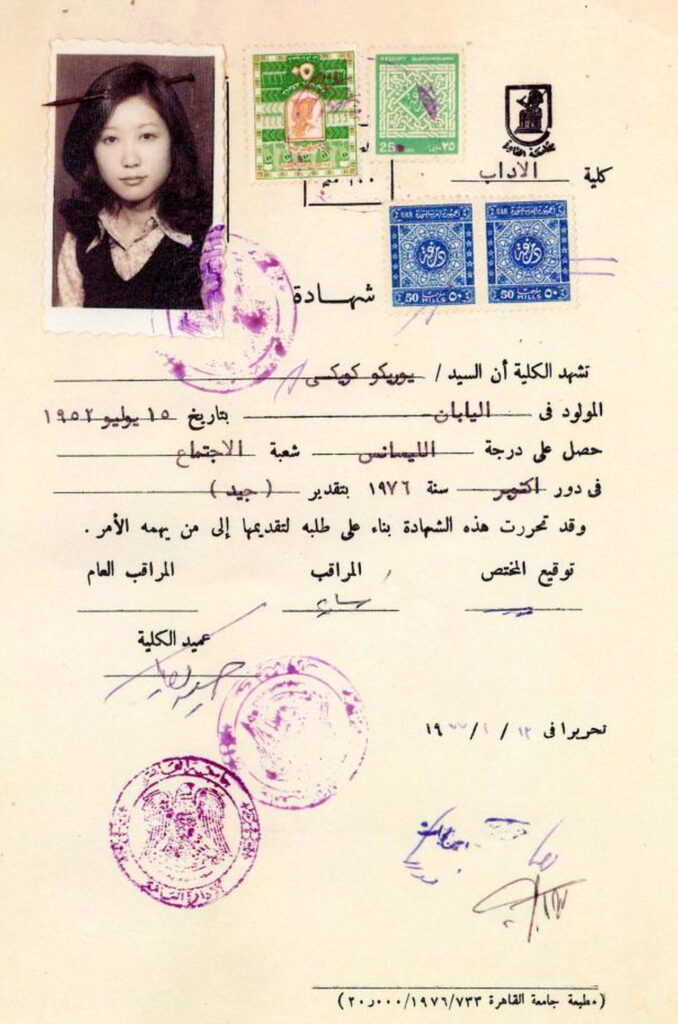 كلية الاداب
UAR
50 MILLS ٥٠
UAR
50 MILLS ٥٠
شهادة
تشهد الكلية أن السيد / يوريكو كويكى
المولود فى اليابان بتاريخ ١٥ يوليو ١٩٥٢
حصل على درجة الليسانس شعبة الاجتماع
فى دور اكتوبر سنة ١٩٧٦ بتقدير ( جيد )
وقد تحررت هذه الشهادة بناء على طلبه لتقديمها إلى من يهمه الأمر .
توقيع المختص المراقب المراقب العام
عميد الكلية
تحريرا فى ١٢ / ١ / ١٩٧٧
جامعة القاهرة
(مطبعة جامعة القاهرة ٢٠٫٠٠٠/١٩٧٦/٧٣٣)